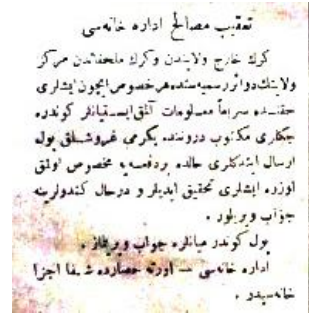 تعقيب مصالح اداره خانه‌سى
كرك خارج ولايتدن وكرك ملحقاتدن مركز
ولايتك دوائر رسميه‌سنده هر خصوص ايچون ايشلرى
حقنده سريعاً معلومات آلمق ايستيانلر كوندره
جكلرى مكتوب دروننده يكرمى غروشلق پول
ارسال ايتدكلرى حالده بر دفعه‌يه مخصوص اولمق
اوزره ايشلرى تحقيق ايديلير و درحال كندولرينه
جواب ويريلور .
پول كوندرميانلره جواب ويرلمز .
اداره خانه‌سى — اورته حصارده شفا اجزا
خانه‌سيدر .